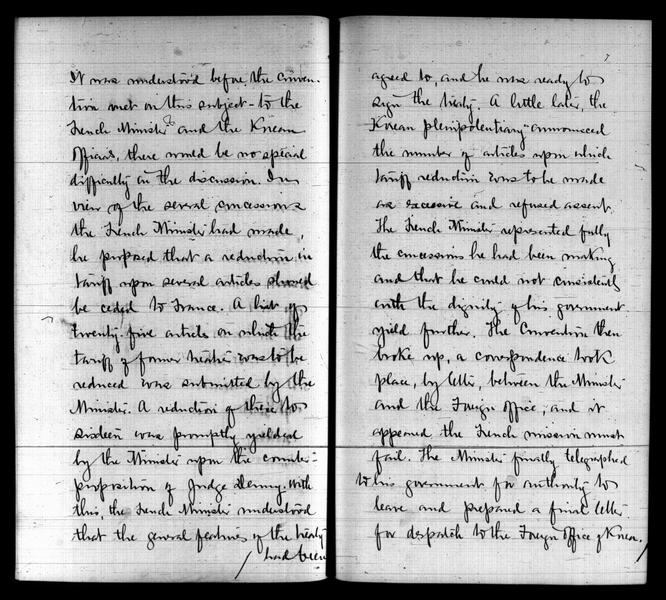 It was understood before the conven-
tion met on this subject - to the
French Minister and the Korean
officials, there would be no special
difficulty in the discussion. In
view of the several concessions
the French Minister had made,
he proposed that a reduction in
tariff upon several articles should
be ceded to France. A list of
twenty-five articles on which the
tariff of former treaties was to be
reduced was submitted by the
Minister. A reduction of these to
sixteen was promptly yielded
by the Minister upon the counter-
proposition of Judge Denny. With
this, the French Minister understood
that the general features of the treaty
had been
7
agreed to, and he was ready to
sign the treaty. A little later, the
Korean plenipotentiary announced
the number of articles upon which
tariff reduction was to be made
as excessive and refused assent.
The French Minister represented fully
the concessions he had been making
and that he could not consistently
with the dignity of his government
yield further. The Convention then
broke up, a correspondence took
place, by letter, between the Minister
and the Foreign Office, and it
appeared the French mission must
fail. The Minister finally telegraphed
to his government for authority to
leave and prepared a final letter
for despatch to the Foreign Office of Korea.